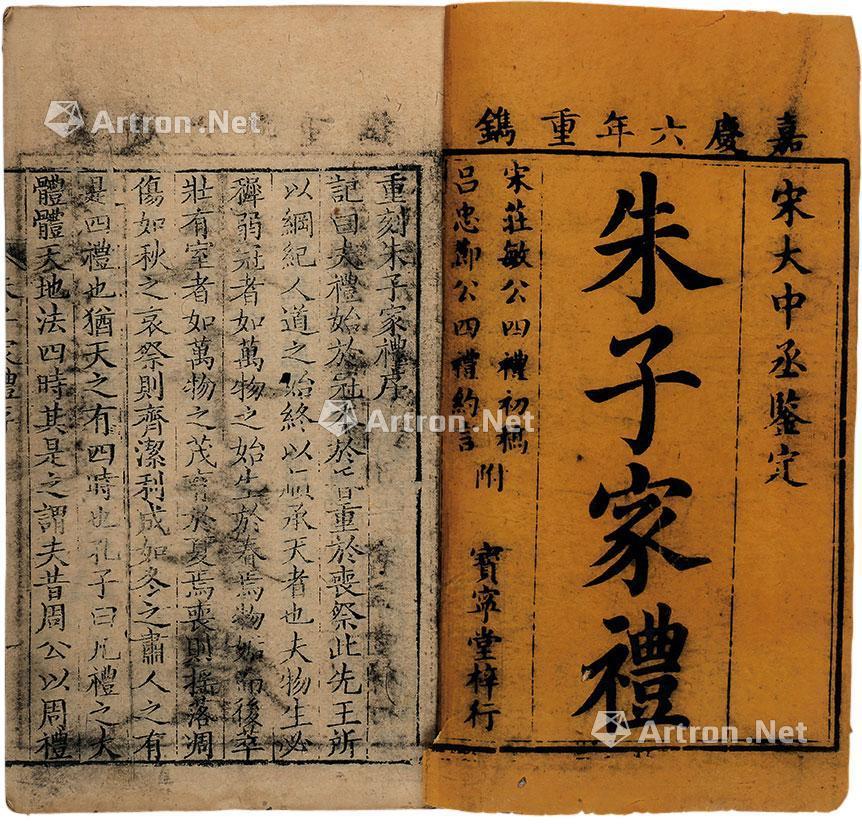 嘉慶六年重鐫
宋大中丞鑒定
朱子家禮
宋莊敏公四禮初稿
呂忠節公四禮約言 附
寶寧堂梓行
重刻朱子家禮序
記曰夫禮始於冠本於昏重於喪祭此先王所
以綱紀人道之始終以順承天者也夫物生必
稺弱冠者如萬物之始生於春焉物始而後莘
壯有室者如萬物之茂育於夏焉喪則搖落凋
傷如秋之哀祭則齊潔利成如冬之肅人之有
是四禮也猶天之有四時也孔子曰凡禮之大
體體天地法四時其是之謂夫昔周公以周禮
朱子家禮序
Artron.Net
Artron.Net
Artron.Net